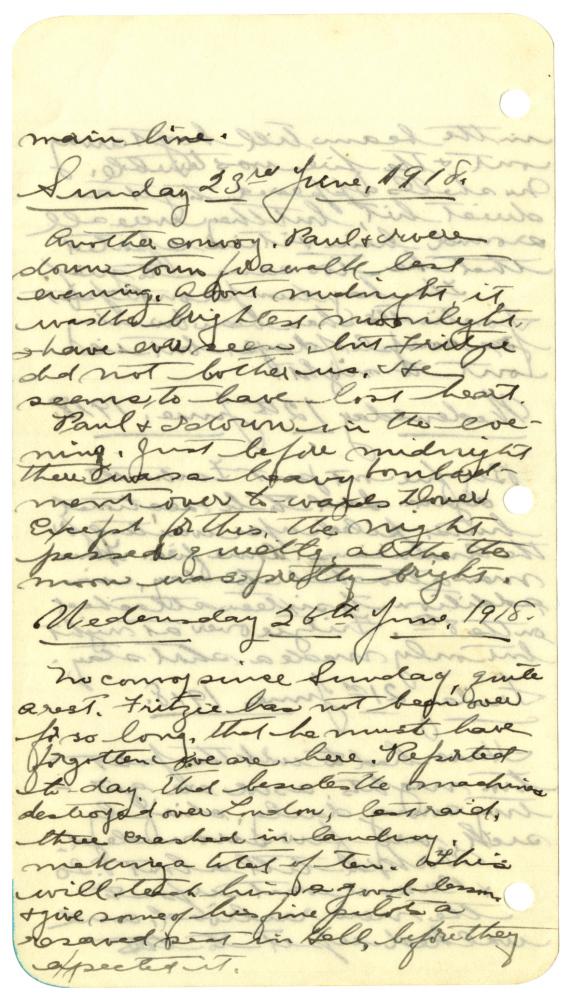 main line.
Sunday 23rd June, 1918.
Another convoy. Paul & I were
down town for a walk last
evening. About midnight, it
was the brightest moonlight
I have ever seen, but Fritzie
did not bother us. He
seems to have lost heart.
Paul & I down in the eve-
ning. Just before midnight
there was a heavy bombard-
ment over towards Dover
Except for this, the night
passed quietly, altho the
moon was pretty bright.
Wednesday 26th June, 1918.
No convoy since Sunday, quite
a rest. Fritzie has not been over
for so long, that he must have
forgotten we are here. Reported
to day that besides the machines
destroyed over London, last raid,
three crashed in landing,
making a total of ten. This
will teach him a good lesson,
& give some of his fine pilots a
reserved seat in Hell, before they
expected it.